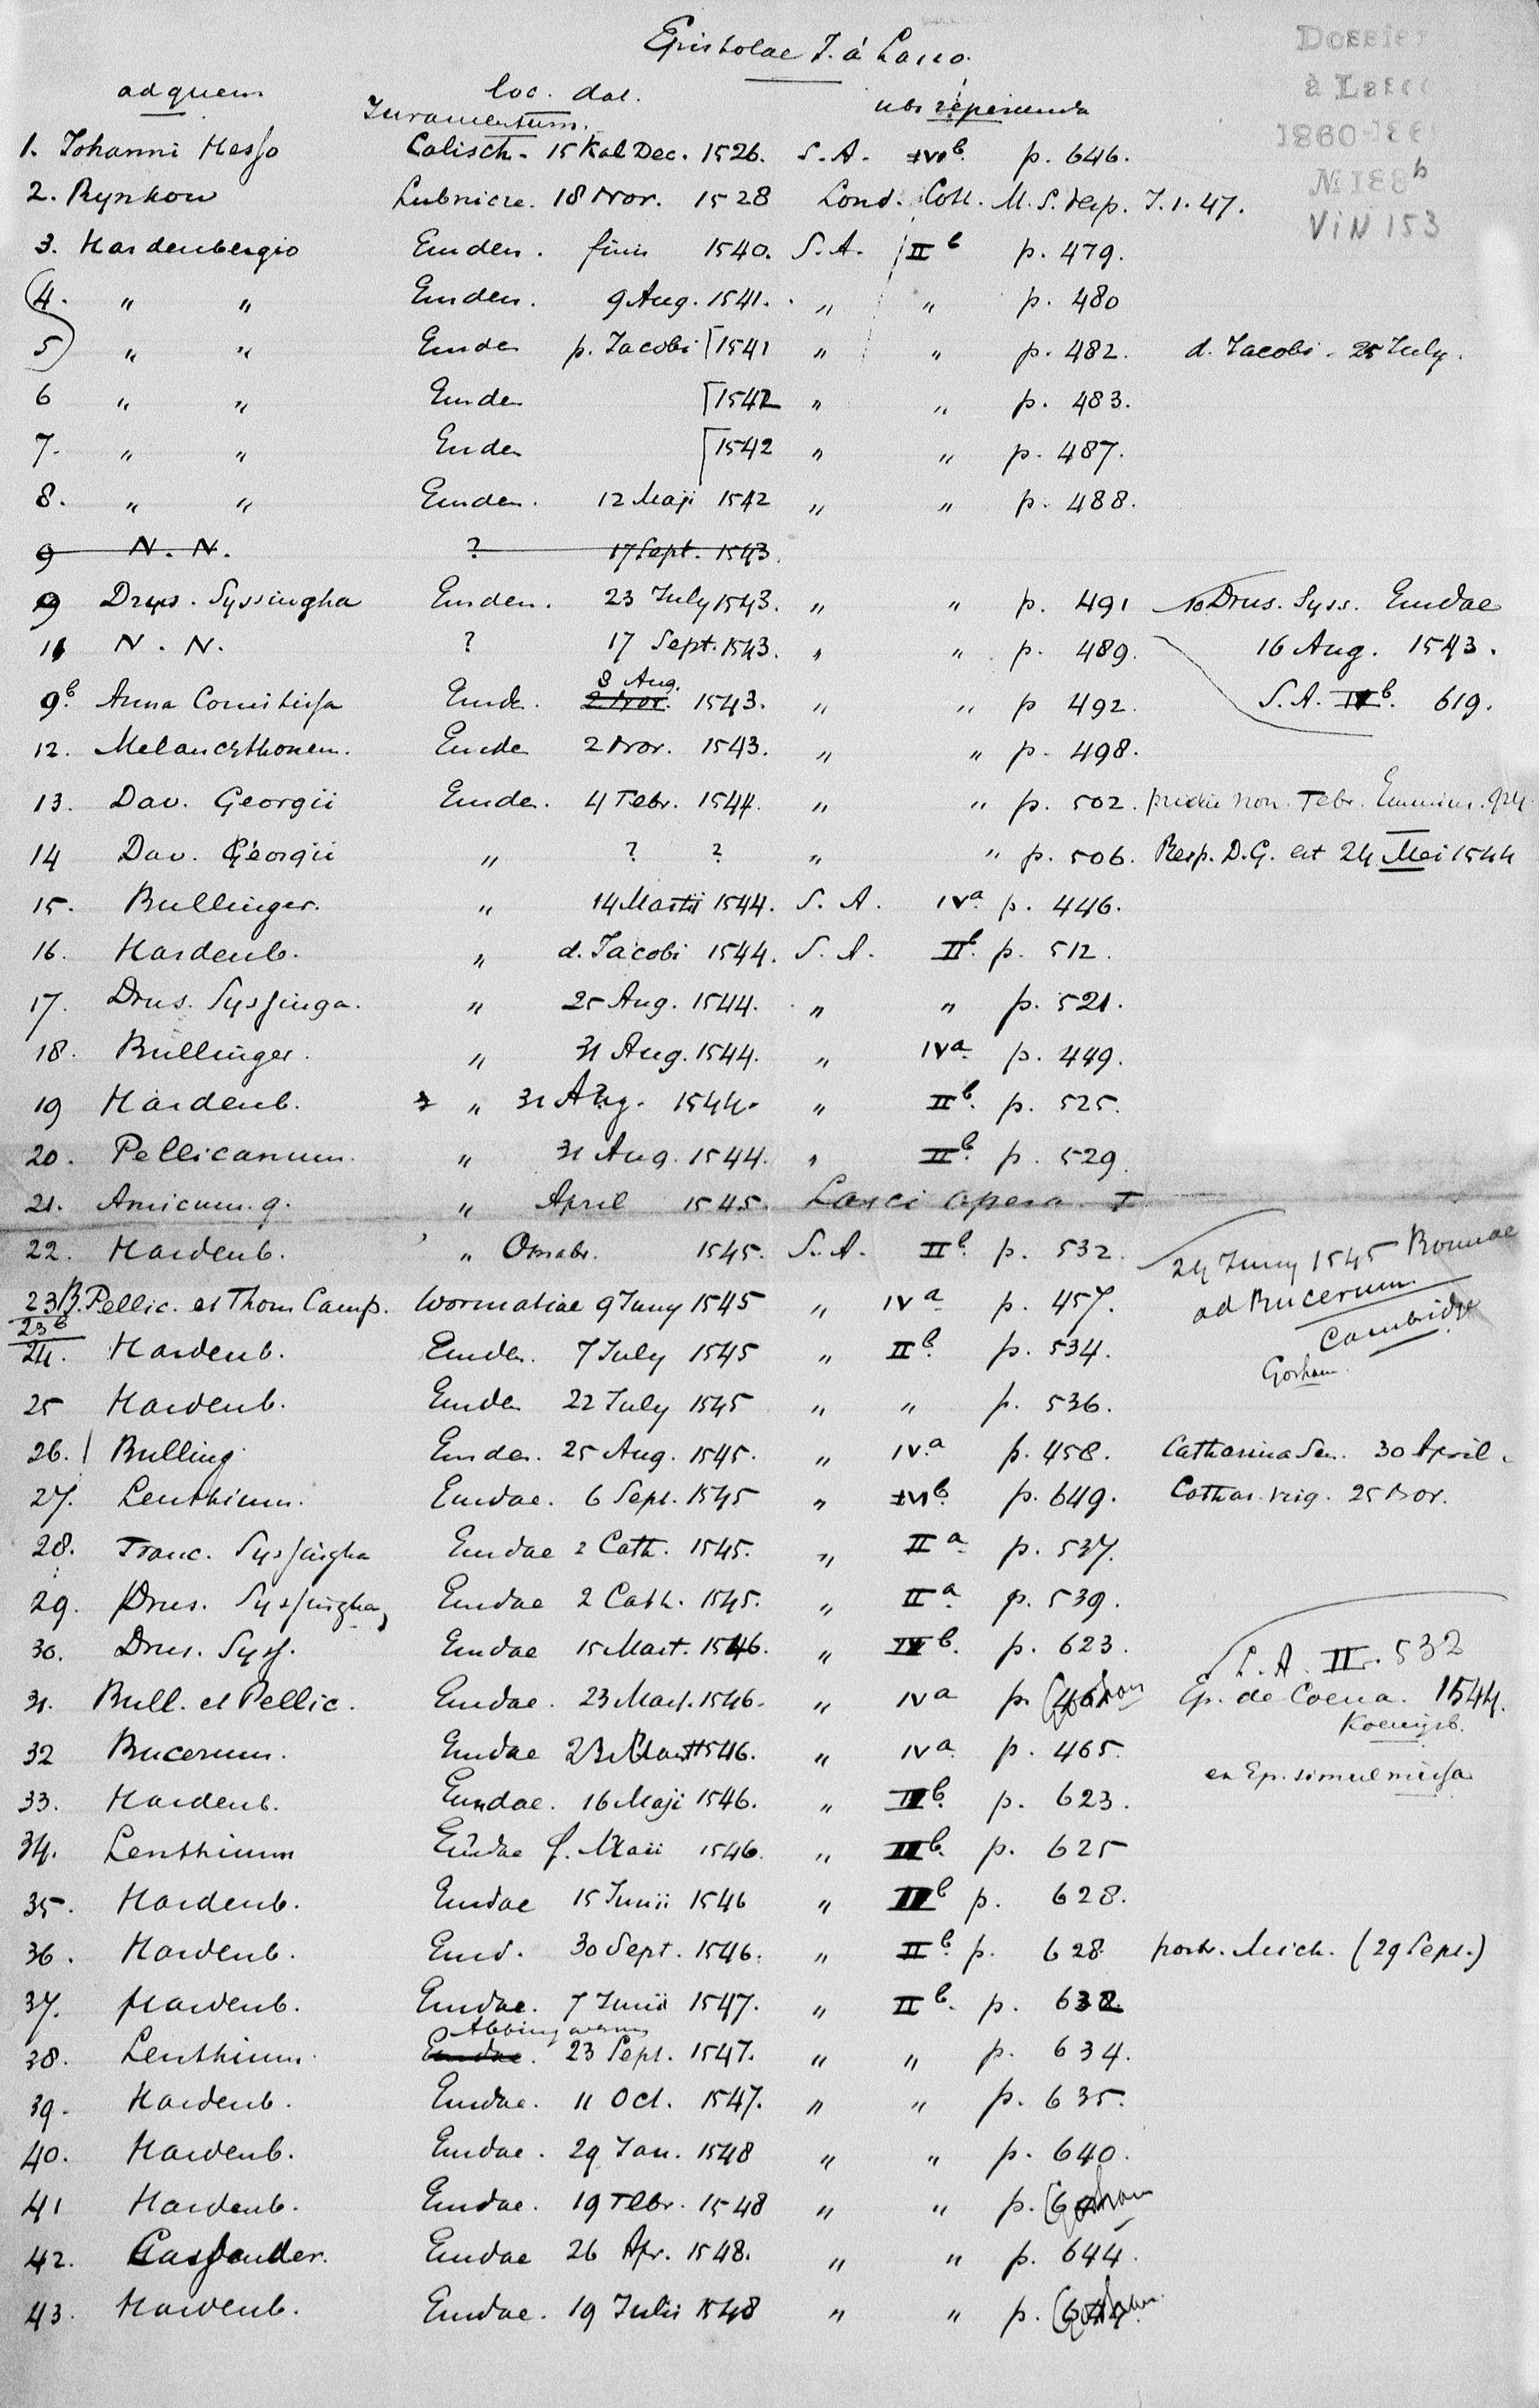 Epistolae J. à Lasco.
Dossier
à Lasco
1860-186
№ 188 b
ViN 153
ad quem loc. dat. ubi reperiunda
Juramentum.
1. Johanni Hesso Calisch. 15 Kal Dec. 1526. S. A. VI b. p. 646.
2. Rynkow Lubnicze. 18 Nov. 1528 Lond. Coll. M. S. Vesp. J. 1. 47.
3. Hardenbergio Emden. finis 1540. S. A. II b p. 479.
(4. " " Emden. 9 Aug. 1541. " " p. 480
5) " " Emden p. Jacobi [1541 " " p. 482. d. Jacobi - 25 July.
6 " " Emden [1542 " " p. 483.
7. " " Emden [1542 " " p. 487.
8. " " Emden. 12 Maji 1542 " " p. 488.
9 N. N. ? 17 Sept. 1543.
9 Drus. Syssingha Emden. 23 July 1543. " " p. 491 10 Drus. Syss. Emdae
11 N. N. ? 17 Sept. 1543. " " p. 489. 16 Aug. 1543.
8 Aug.
9b. Anna Comitissa Emd. 2 Nov. 1543. " " p 492. S. A. IV b. 619.
12. Melanchthonem. Emde 2 Nov. 1543. " " p. 498.
13. Dav. Georgii Emde. 4 Febr. 1544. " " p. 502. pridie non. Febr. Emmius. 924
14 Dav. Georgii " ? ? " " p. 506. Resp. D. G. est 24 Mei 1544
15. Bullinger. " 14 Martii 1544. S. A. IV a. p. 446.
16. Hardenb. " d. Jacobi 1544. S. A. II b. p. 512.
17. Drus. Syssinga. " 25 Aug. 1544. " " p. 521.
18. Bullinger. " 31 Aug. 1544. " IV a. p. 449.
19 Hardenb. " 31 Aug. 1544. " II b. p. 525.
20. Pellicanum. " 31 Aug. 1544. " II b. p. 529.
21. Amicum. q. " April 1545. Lasci opera. I
22. Hardenb. " Osnabr. 1545. S. A. II b. p. 532.
24 Juny 1545 Bonnae
ad Bucerum
Cambidge
Gorham.
23 B. Pellic. et Thom Camp. Wormatiae 9 Juny 1545 " IV a p. 457.
23 b
24. Hardenb. Emden. 7 July 1545 " II b. p. 534.
25 Hardenb. Emden 22 July 1545 " " p. 536.
26. Bulling. Emden. 25 Aug. 1545. " IV. a p. 458. Catharina Sen. 30 April.
27. Lenthium. Emdae. 6 Sept. 1545 " VI b. p. 649. Cathar. virg. 25 Nov.
28. Franc. Syssingha Emdae 2 Cath. 1545. " II a p. 537.
29. Drus. Syssingha, Emdae 2 Cath. 1545. " II a p. 539.
30. Drus. Syss. Emdae 15 Mart. 1546. " IV b. p. 623. S. A. II. 532
31. Bull. et Pellic. Emdae. 23 Mart. 1546. " IV a p. Gorham Ep. de Coena. 1544.
Koenigsb.
32 Bucerum. Emdae 23 Mart 1546. " IV a p. 465.
en Ep. simul missa
33. Hardenb. Emdae. 16 Maji 1546. " II b. p. 623.
34. Lenthium Emdae f. Maii 1546. " II b. p. 625
35. Hardenb. Emdae 15 Junii 1546 " II b p. 628.
36. Hardenb. Emd. 30 Sept. 1546. " II b. p. 628. postr. Mich. (29 Sept.)
37. Hardenb. Emdae. 7 Junii 1547. " II b. p. 632
Abbingwerum
38. Lenthium. Emdae. 23 Sept. 1547. " " p. 634.
39. Hardenb. Emdae. 11 Oct. 1547. " " p. 635.
40. Hardenb. Emdae. 29 Jan. 1548 " " p. 640.
41 Hardenb. Emdae. 19 Febr. 1548 " " p. Gorham
42. Cassander. Emdae 26 Apr. 1548. " " p. 644.
43. Hardenb. Emdae. 19 Julii 1548 " " p. Gorham.